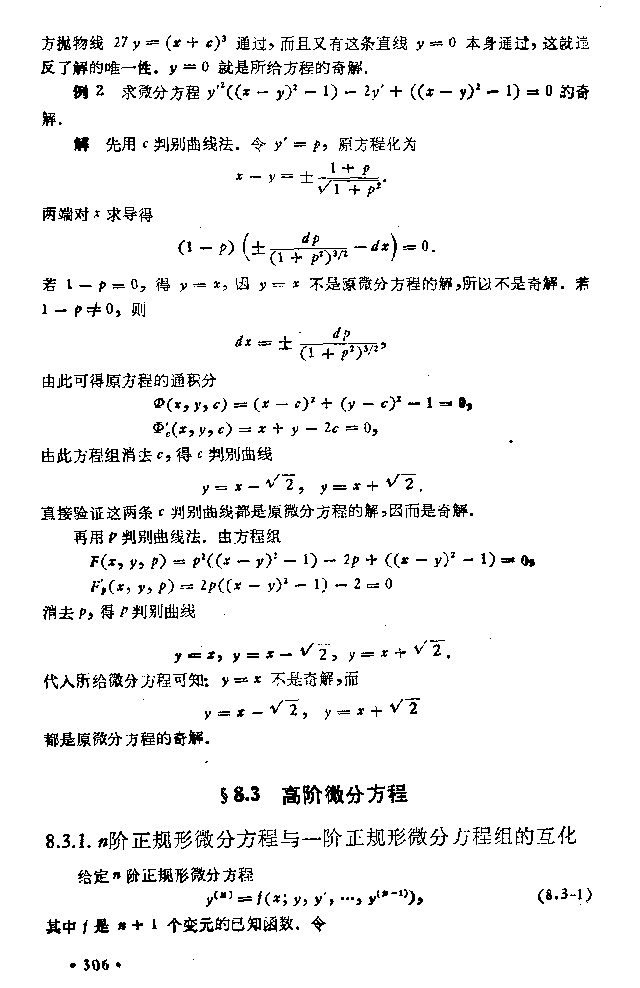 方抛物线 27 y = (x + c)³ 通过，而且又有这条直线 y = 0 本身通过，这就违
反了解的唯一性。y = 0 就是所给方程的奇解.
例 2 求微分方程 y′²((x − y)² − 1) − 2y′ + ((x − y)² − 1) = 0 的奇
解.
解 先用 c 判别曲线法. 令 y′ = p, 原方程化为
x − y = ± (1 + p)/√(1 + p²).
两端对 x 求导得
(1 − p) (± dp/(1 + p²)^{3/2} − dx) = 0.
若 1 − p = 0, 得 y = x, 因 y = x 不是原微分方程的解,所以不是奇解. 若
1 − p ≠ 0, 则
dx = ± dp/(1 + p²)^{3/2},
由此可得原方程的通积分
Φ(x, y, c) = (x − c)² + (y − c)² − 1 = 0,
Φ′c(x, y, c) = x + y − 2c = 0,
由此方程组消去 c, 得 c 判别曲线
y = x − √2, y = x + √2.
直接验证这两条 c 判别曲线都是原微分方程的解,因而是奇解.
再用 P 判别曲线法. 由方程组
F(x, y, p) = p²((x − y)² − 1) − 2p + ((x − y)² − 1) = 0,
F′p(x, y, p) = 2p((x − y)² − 1) − 2 = 0
消去 p, 得 P 判别曲线
y = x, y = x − √2, y = x + √2.
代入所给微分方程可知: y = x 不是奇解,而
y = x − √2, y = x + √2
都是原微分方程的奇解.
§ 8.3 高阶微分方程
8.3.1. n阶正规形微分方程与一阶正规形微分方程组的互化
给定 n 阶正规形微分方程
y⁽ⁿ⁾ = f(x; y, y′, …, y⁽ⁿ⁻¹⁾), (8.3-1)
其中 f 是 n + 1 个变元的已知函数. 令
• 306 •